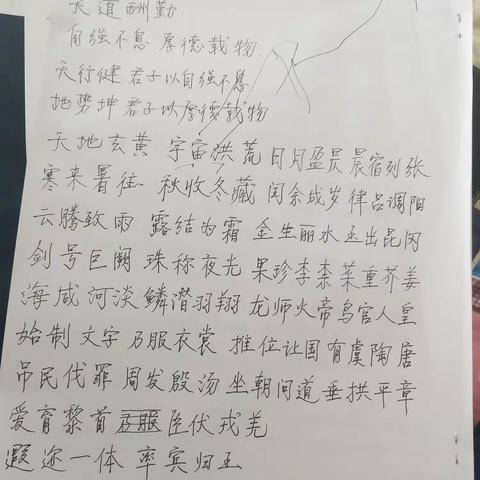 天道酬勤
自强不息 厚德载物
天行健 君子以自强不息
地势坤 君子以厚德载物
天地玄黄 宇宙洪荒 日月盈昃 晨宿列张
寒来暑往 秋收冬藏 闰余成岁 律吕调阳
云腾致雨 露结为霜 金生丽水 玉出昆冈
剑号巨阙 珠称夜光 果珍李柰 菜重芥姜
海咸河淡 鳞潜羽翔 龙师火帝 鸟官人皇
始制文字 乃服衣裳 推位让国 有虞陶唐
吊民伐罪 周发殷汤 坐朝问道 垂拱平章
爱育黎首 乃服 臣伏戎羌
遐迩一体 率宾归王